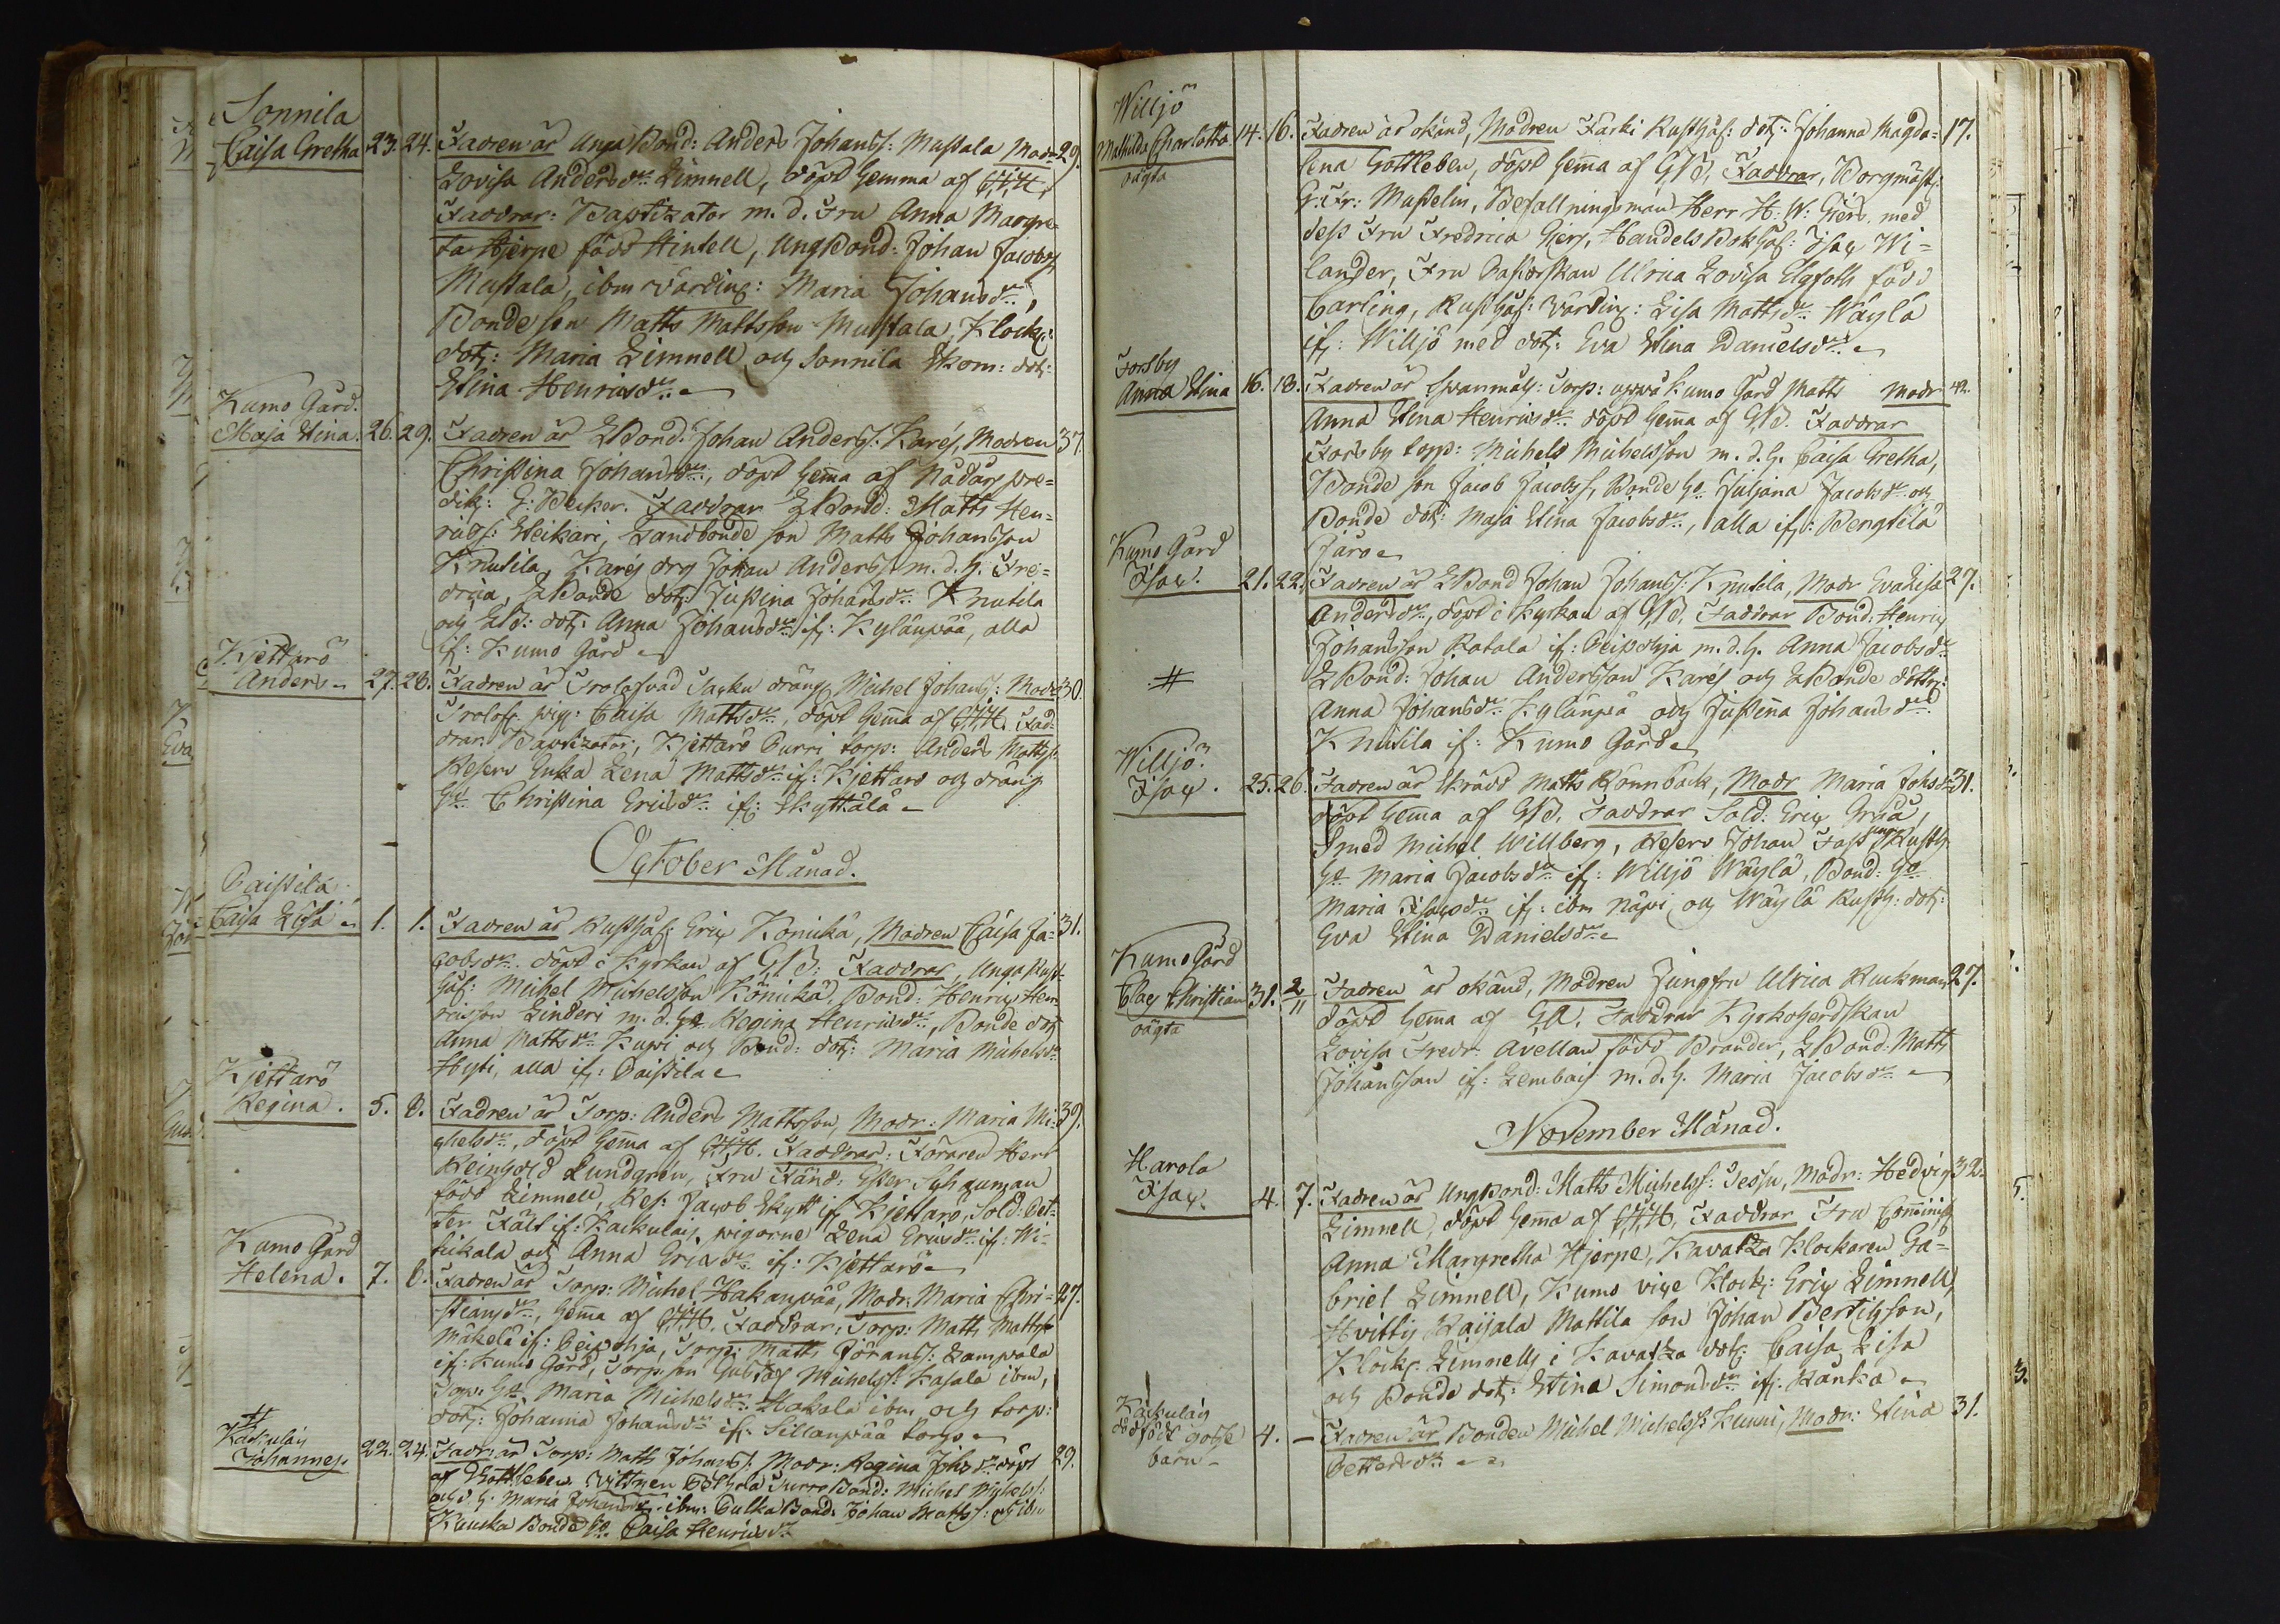 Sonnila
Caisa Gretha 23. 24. Fadren är Unga Bond: Anders Johanss: Mustala Modr 29.
Lovisa Andersdr Limnell, döpt hemma af C.H.H.
Faddrar: Baptizator m. d. Fru Anna Margre-
ta Hjerpe född Hintell, Ung Bond: Johan Jacobss
Mustala, ibm värding: Maria Johansdr,
Bonde son Matts Mattsson Mustala, Klock:
dotr: Maria Limnell och Sonnila Skom: dotr:
Stina Henricsdr
Kumo Gård.
Maja Stina. 26. 29. Fadren är LBond: Johan Anderss: Karés, Modren 37.
Christina Johansdr, döpt hemma af Nådårs pre-
dik: G: Becker. Faddrar LBond: Matts Hen-
ricss: Steikari, Landbonde son Matts Johansson
Knutila, Karés drg Johan Anderss m. d. h. Fre-
drica, LBonde dotr: Justina Johansdr Knutila
och LB: dotr: Anna Johansdr if: Kylänpää, alla
if: Kumo Gård
Kjettarö
Anders 27. 28. Fadren är Trolofvad Sacku dräng Michel Johanss: Modr 30.
Trolofv. pig: Caisa Mattsdr, döpt hemma af C.H.H. Fad-
drar: Baptizator, Kjettarö Purri torp: Anders Mattss:
Reserv Enka Lena Mattsdr if: Kjettarö och dräng
hu Christina Ericsdr if: Skyttälä
October Månad.
Paistila
Caisa Lisa 1. 1. Fadren är Rusthåll: Eric Könickä, Modren Caisa Ja- 31.
cobsdr. döpt i Kyrkan af G.B: Faddrar, Unga Rust-
håll: Michel Michelsson Könickä, Bond: Henric Hen-
ricsson Linderi m. d. hu Regina Henricsdr, Bonde dotr
Anna Mattsdr Kupi och Bond: dotr: Maria Michelsdr
Hyti, alla if: Paistila
Kjettarö
Regina. 5. 8. Fadren är Torp: Anders Mattsson, Modr: Maria Mi- 39.
chelsdr, döpt hemma af C.H.H. Faddrar: Föraren Herr
Reinhold Lundgrén, Fru Fänd: Ester Schauman
född Limnell, Res: Jacob Skytt if Kjettarö, Sold: Pet-
ter Fält if: Kackulais, pigorne Lena Ericsdr if: Wi-
tickala och Anna Ericsdr if: Kjettarö
Kumo Gård
Helena. 7. 8. Fadren är Torp: Michel Hakanpää, Modr: Maria Chri- 27.
stiansdr, hemma af C.H.H. Faddrar: Torp: Matts Mattss
Mäkelä if: Peipohja, Torp: Matts Göranss: Lampala
if: Kumo Gård, Torp: son Gustaf Michelss: Kasala ibm,
Torp: hu Maria Michelsdr Hakala ibm och torp:
dotr: Johanna Johansdr if: Sillanpää torp
#
Kackulais
Johannes. 22. 24. Fadr: är Torp: Matts Johanss: Modr: Regina Johsdr döpt 29.
af Gottleben Vittnen Turro Bond: Michel Michelss:
och d. h. Maria Johansdr ibm: Pulka Bond: Johan Mattss: och ibm
Kauska Bonde hu Caisa Henricsdr
Willjö
Mathilda Charlotta 14. 16. Fadren är okänd, Modren Färki Rusthåll: dotr: Johanna Magda- 17.
oägta
lena Gottleben, döpt hemma af G.B, Faddrar, Borgmäst:
G: Fr: Masselin, Befallningsman Herr H: W: Giers med
dess Fru Fredrica Giers, Handels Bokhål: Isac Wi-
lander, Fru Casörskan Ulrica Lovisa Elgfoth född
Carling, Rusthål: värding: Lisa Mattsdr Wäylä
if: Willjö med dotr: Eva Stina Danielsdr
Forsby
Anna Stina 16. 18. Fadren är Sqvarmäst: Torp: uppå Kumo Gård Matts Modr 42.
Anna Stina Henricsdr döpt hemma af G.B. Faddrar
Forsby torp: Michels Michelsson m. d. h. Caisa Gretha,
Bonde son Jacob Jacobss, Bonde hu Juliana Jacobsdr och
Bonde dotr: Maja Stina Jacobsdr, alla if: Bengtilä
Järo
Kumo Gård
Isac. 21. 22. Fadren är LBond Johan Johanss: Knutila, Modr Eva Lisa 27.
Andersdr, döpt i Kyrkan af G.B, Faddrar Bond: Henric
Johansson Ratala if: Peipohja m. d. h. Anna Jacobsdr
# LBond: Johan Andersson Karés och LBonde döttr:
Anna Johansdr Kylänpä och Justina Johansdr
Knutila if: Kumo Gård
Willjö
Isac. 25. 26. Fadren är Skrädd Matts Rönnbäck, Modr Maria Johsdr 31.
döpt hemma af G.B, Faddrar Sold: Eric Gråå,
Smed Michel Willberg, Reserv Johan Fast ung Rusth
hu Maria Jacobsdr if: Willjö Wäylä, Bond: hu
Maria Isacsdr if: ibm Näpi och Wäylä Rusth: dotr:
Eva Stina Danielsdr
Kumo Gård
Clas Christian 31. 2/11 Fadren är okänd, Modren Jungfru Ulrica Ruckman 27.
oägta
döpt hemma af G.A. Faddrar Kyrkoherdskan
Lovisa Fredr: Avellan född Brander, LBond: Matts
Johansson if: Lembais m. d. h. Maria Jacobsdr
November Månad.
Harola
Isac. 4. 7. Fadren är Ung Bond: Matts Michelss: Sessu, Modr: Hedvig 32.
Limnell, döpt hemma af C.H.H, Faddrar Fru Comminist
Anna Margretha Hjerpe, Kavatza Klockaren Ga-
briel Limnell, Kumo vice Klock: Eric Limnell,
Hvittis Raijala Mattila son Johan Bertilsson,
Klock: Limnells i Kavatza dotr: Caisa Lisa
och Bonde dotr: Stina Simonsdr if: Ranka
Kackulais
dödfödt gosse 4. – Fadren är Bonden Michel Michelss Kunni, Modr: Stina 31.
barn
Pettersdr